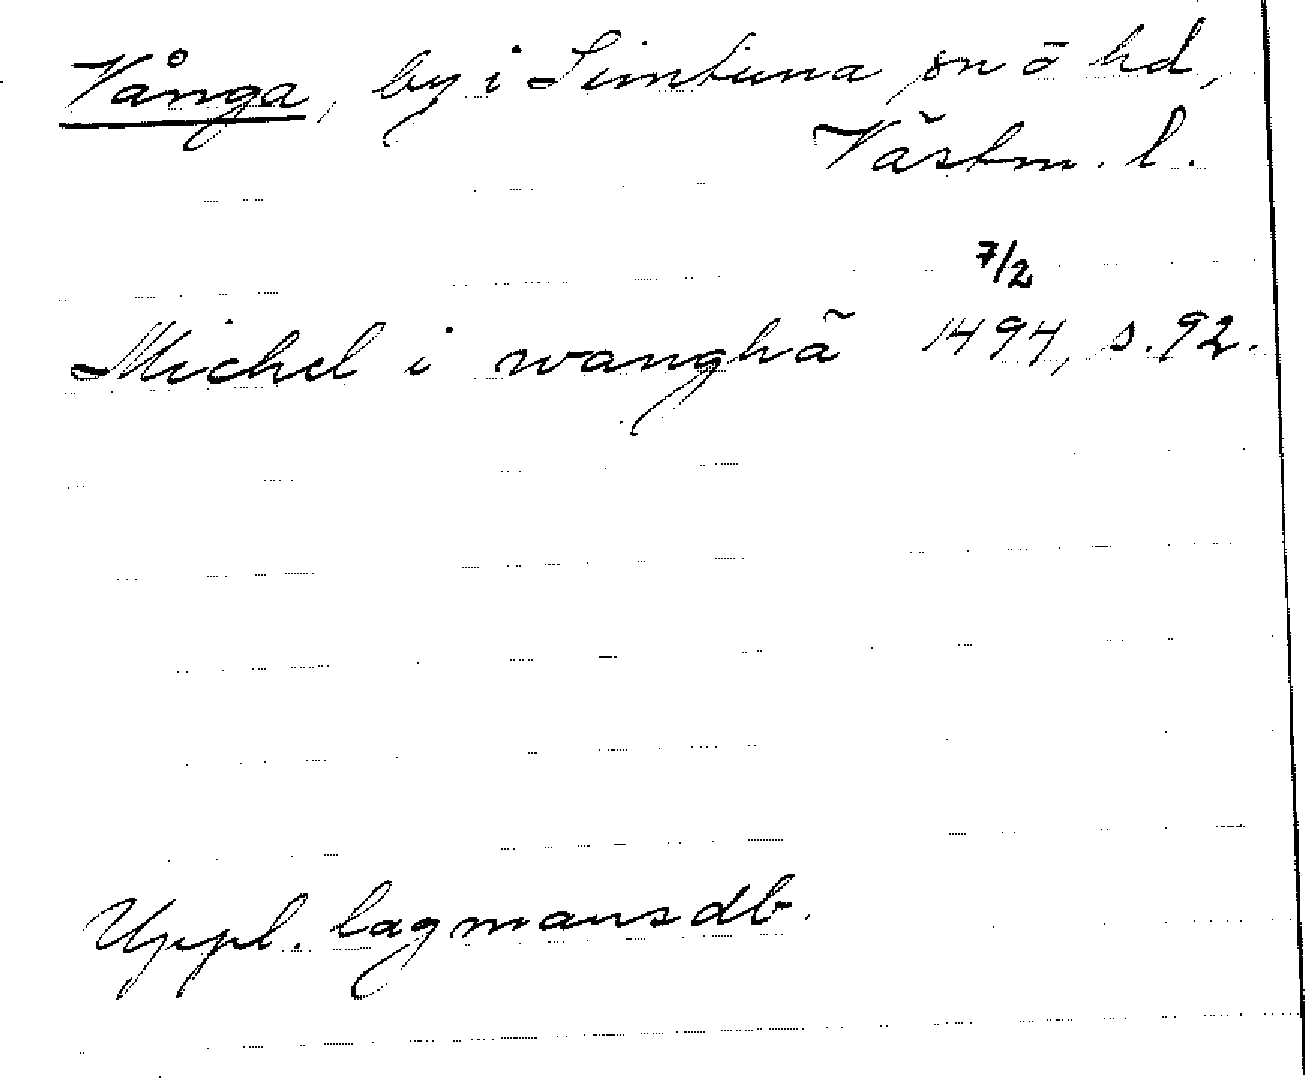 Vånga, by i Simtuna sn o hd,
Västm. l.
7/2
Michel i wanghã 1494, s. 92.
Uppl. lagmansdb.